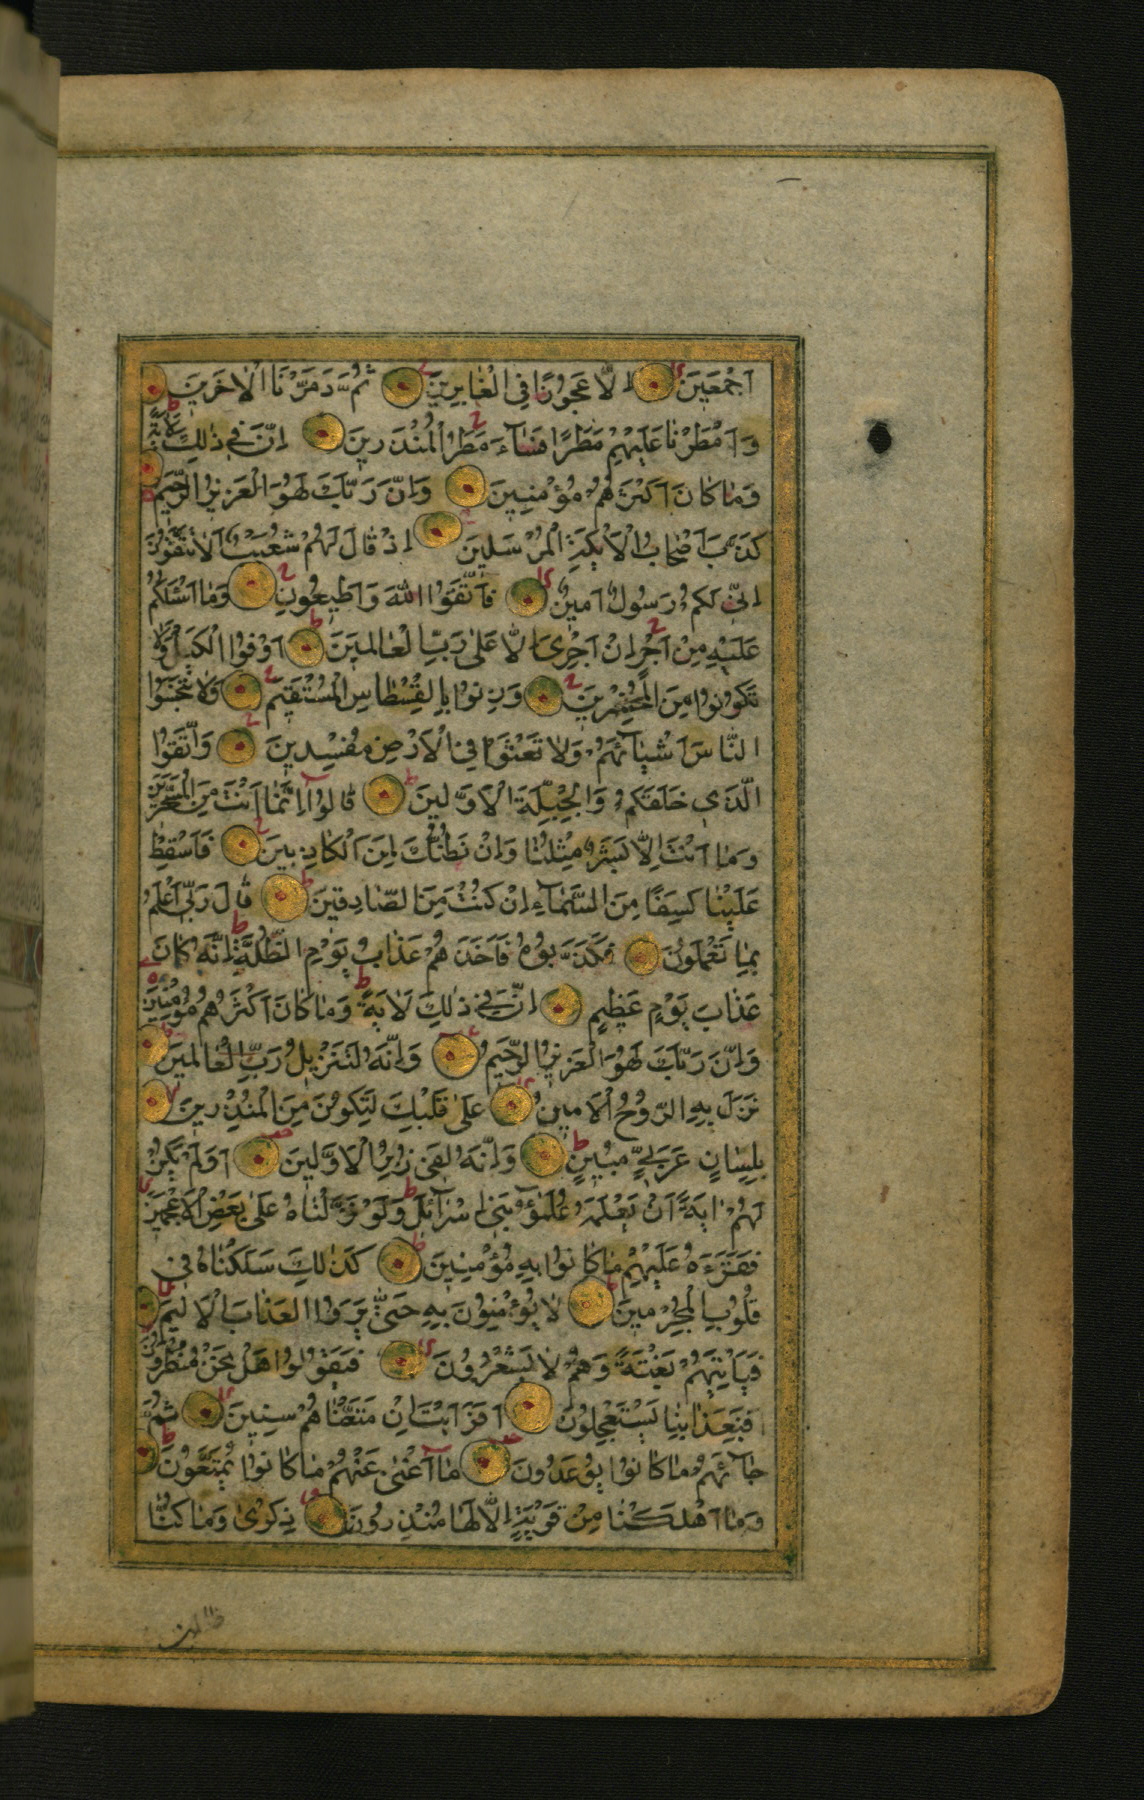 اَجْمَعِينَ اِلَّا عَجُوزًا فِي الْغَابِرِينَ ثُمَّ دَمَّرْنَا الْاٰخَرِينَ
وَاَمْطَرْنَا عَلَيْهِمْ مَطَرًا فَسَآءَ مَطَرُ الْمُنْذَرِينَ اِنَّ فِي ذٰلِكَ لَاٰيَةً
وَمَا كَانَ اَكْثَرُهُمْ مُؤْمِنِينَ وَاِنَّ رَبَّكَ لَهُوَ الْعَزِيزُ الرَّحِيمُ
كَذَّبَ اَصْحَابُ الْاَيْكَةِ الْمُرْسَلِينَ اِذْ قَالَ لَهُمْ شُعَيْبٌ اَلَا تَتَّقُونَ
اِنِّي لَكُمْ رَسُولٌ اَمِينٌ فَاتَّقُوا اللّٰهَ وَاَطِيعُونِ وَمَا اَسْئَلُكُمْ
عَلَيْهِ مِنْ اَجْرٍ اِنْ اَجْرِيَ اِلَّا عَلٰى رَبِّ الْعَالَمِينَ اَوْفُوا الْكَيْلَ وَلَا
تَكُونُوا مِنَ الْمُخْسِرِينَ وَزِنُوا بِالْقِسْطَاسِ الْمُسْتَقِيمِ وَلَا تَبْخَسُوا
النَّاسَ اَشْيَآئَهُمْ وَلَا تَعْثَوْا فِي الْاَرْضِ مُفْسِدِينَ وَاتَّقُوا
الَّذِي خَلَقَكُمْ وَالْجِبِلَّةَ الْاَوَّلِينَ قَالُوا اِنَّمَا اَنْتَ مِنَ الْمُسَحَّرِينَ
وَمَا اَنْتَ اِلَّا بَشَرٌ مِثْلُنَا وَاِنْ نَظُنُّكَ لَمِنَ الْكَاذِبِينَ فَاَسْقِطْ
عَلَيْنَا كِسَفًا مِنَ السَّمَآءِ اِنْ كُنْتَ مِنَ الصَّادِقِينَ قَالَ رَبِّي اَعْلَمُ
بِمَا تَعْمَلُونَ فَكَذَّبُوهُ فَاَخَذَهُمْ عَذَابُ يَوْمِ الظُّلَّةِ اِنَّهُ كَانَ
عَذَابَ يَوْمٍ عَظِيمٍ اِنَّ فِي ذٰلِكَ لَاٰيَةً وَمَا كَانَ اَكْثَرُهُمْ مُؤْمِنِينَ
وَاِنَّ رَبَّكَ لَهُوَ الْعَزِيزُ الرَّحِيمُ وَاِنَّهُ لَتَنْزِيلُ رَبِّ الْعَالَمِينَ
نَزَلَ بِهِ الرُّوحُ الْاَمِينُ عَلٰى قَلْبِكَ لِتَكُونَ مِنَ الْمُنْذِرِينَ
بِلِسَانٍ عَرَبِيٍّ مُبِينٍ وَاِنَّهُ لَفِي زُبُرِ الْاَوَّلِينَ اَوَلَمْ يَكُنْ
لَهُمْ اٰيَةً اَنْ يَعْلَمَهُ عُلَمٰٓؤُا بَنِي اِسْرَآئِلَ وَلَوْ نَزَّلْنَاهُ عَلٰى بَعْضِ الْاَعْجَمِينَ
فَقَرَءَهُ عَلَيْهِمْ مَا كَانُوا بِهِ مُؤْمِنِينَ كَذٰلِكَ سَلَكْنَاهُ فِي
قُلُوبِ الْمُجْرِمِينَ لَا يُؤْمِنُونَ بِهِ حَتّٰى يَرَوُا الْعَذَابَ الْاَلِيمَ
فَيَاْتِيَهُمْ بَغْتَةً وَهُمْ لَا يَشْعُرُونَ فَيَقُولُوا هَلْ نَحْنُ مُنْظَرُونَ
اَفَبِعَذَابِنَا يَسْتَعْجِلُونَ اَفَرَاَيْتَ اِنْ مَتَّعْنَاهُمْ سِنِينَ ثُمَّ
جَآئَهُمْ مَا كَانُوا يُوعَدُونَ مَا اَغْنٰى عَنْهُمْ مَا كَانُوا يُمَتَّعُونَ
وَمَا اَهْلَكْنَا مِنْ قَرْيَةٍ اِلَّا لَهَا مُنْذِرُونَ ذِكْرٰى وَمَا كُنَّا
ظالمين